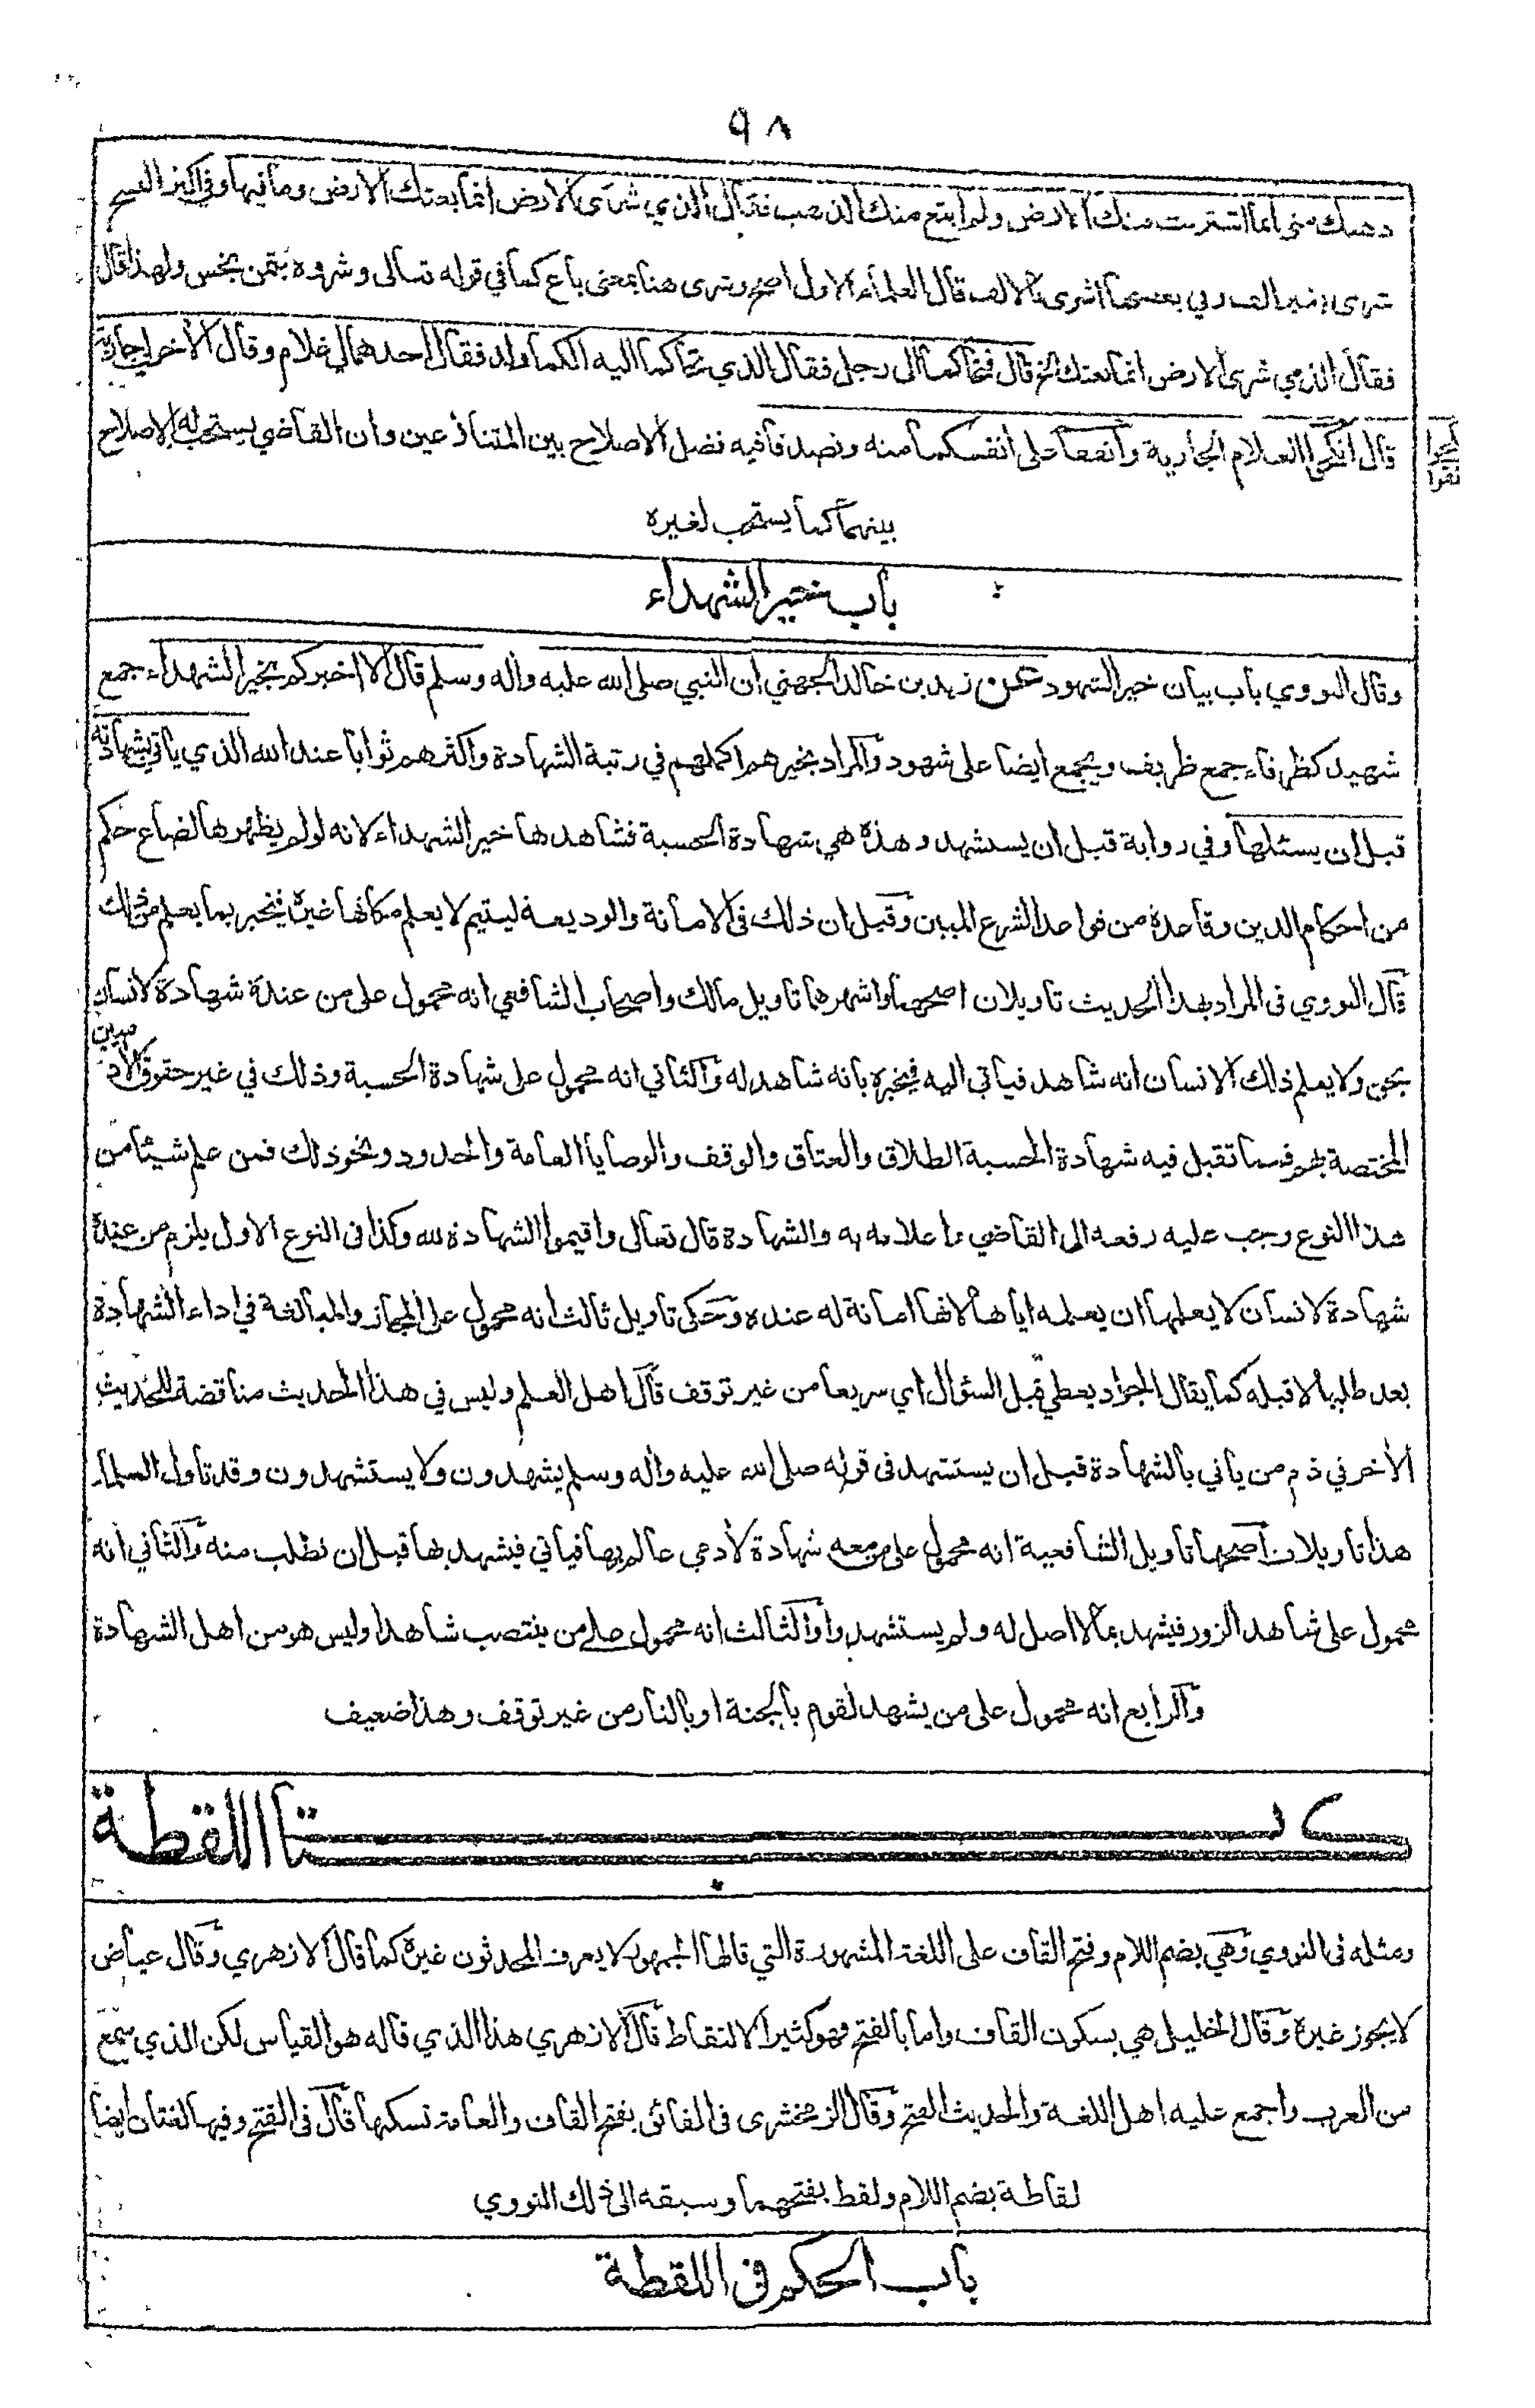 ٩٨
ذهبك مني انما اشتريت منك الارض ولم ابتع منك الذهب فقال الذي شرى الارض انما بعتك الارض وما فيها وفي اكثر النسخ
شرى بغير الف وفي بعضها اشرى بالالف قال العلماء الاول اصح وشرى هنا بمعنى باع كما في قوله تعالى وشروه بثمن بخس ولهذا قال
فقال الذي شرى الارض انما بعتك الخ قال فتحاكما الى رجل فقال الذي تحاكما اليه الكما ولد فقال احدهما لي غلام وقال الآخر لي جارية
قال انكحوا الغلام الجارية وانفقا على انفسكما منه وتصدقا فيه فضل الاصلاح بين المتنازعين وان القاضي يستحب له الاصلاح
انكحوا
انفقوا
بينهما كما يستحب لغيره
باب خير الشهداء
وقال النووي باب بيان خير الشهود عن زيد بن خالد الجهني ان النبي صلى الله عليه وآله وسلم قال الا اخبركم بخير الشهداء جمع
شهيد كظرفاء جمع ظريف ويجمع ايضا على شهود والمراد بخيرهم اكملهم في رتبة الشهادة واكثرهم ثوابا عند الله الذي ياتي بشهادته
قبل ان يسئلها وفي رواية قبل ان يستشهد وهذه هي شهادة الحسبة فشاهدها خير الشهداء لانه لو لم يظهرها لضاع حكم
من احكام الدين وقاعدة من قواعد الشرع المبين وقيل ان ذلك في الامانة والوديعة ليتيم لا يعلم مكانها غيره فيخبر بما يعلم من ذلك
قال النووي في المراد بهذا الحديث تاويلان اصحهما واشهرهما تاويل مالك واصحاب الشافعي انه محمول على من عنده شهادة لانسان
بحق ولا يعلم ذلك الانسان انه شاهد فياتي اليه فيخبره بانه شاهد له والثاني انه محمول على شهادة الحسبة وذلك في غير حقوق الادميين
المختصة بهم فمما تقبل فيه شهادة الحسبة الطلاق والعتاق والوقف والوصايا العامة والحدود ونحو ذلك فمن علم شيئا من
هذا النوع وجب عليه رفعه الى القاضي واعلامه به والشهادة قال تعالى واقيموا الشهادة لله وكذا في النوع الاول يلزم من عنده
شهادة لانسان لا يعلمها ان يعلمه اياها لانها امانة له عنده وحكى تاويل ثالث انه محمول على المجاز والمبالغة في اداء الشهادة
بعد طلبها لا قبله كما يقال الجواد يعطي قبل السؤال اي سريعا من غير توقف قال اهل العلم وليس في هذا الحديث مناقضة للحديث
الآخر في ذم من ياتي بالشهادة قبل ان يستشهد في قوله صلى الله عليه وآله وسلم يشهدون ولا يستشهدون وقد تاول العلماء
هذا تاويلات اصحها تاويل الشافعية انه محمول على من معه شهادة لآدمي عالم بها فياتي فيشهد بها قبل ان تطلب منه والثاني انه
محمول على شاهد الزور فيشهد بما لا اصل له ولم يستشهد والثالث انه محمول على من ينتصب شاهدا وليس هو من اهل الشهادة
والرابع انه محمول على من يشهد لقوم بالجنة او بالنار من غير توقف وهذا ضعيف
كتاب اللقطة
ومثله في النووي وهي بضم اللام وفتح القاف على اللغة المشهورة التي قالها الجمهور لا يعرف المحدثون غيره كما قال الازهري وقال عياض
لا يجوز غيره وقال الخليل هي بسكون القاف واما بالفتح فهو كثير الالتقاط قال الازهري هذا الذي قاله هو القياس لكن الذي سمع
من العرب واجمع عليه اهل اللغة والحديث الفتح وقال الزمخشرى في الفائق بفتح القاف والعامة تسكنها قال في الفتح وفيها لغتان ايضا
لقاطة بضم اللام ولقط بفتحهما وسبقه الى ذلك النووي
باب الحكم في اللقطة